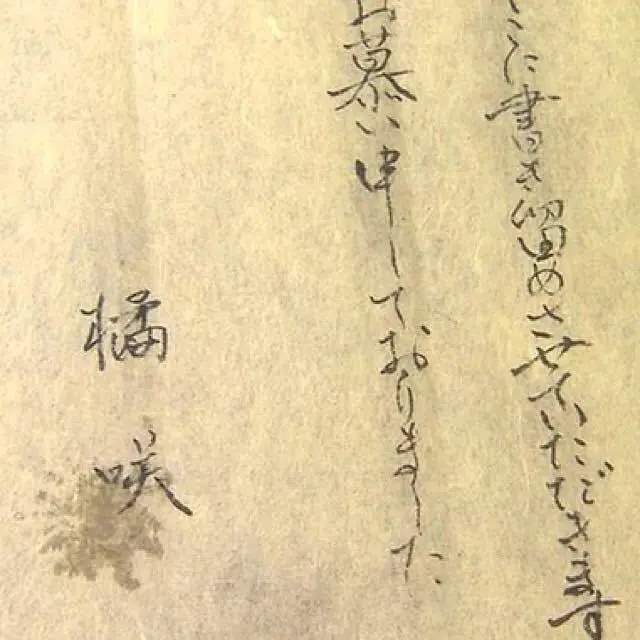 ここに書き留めさせていただきます
お慕い申しておりました
橘 咲